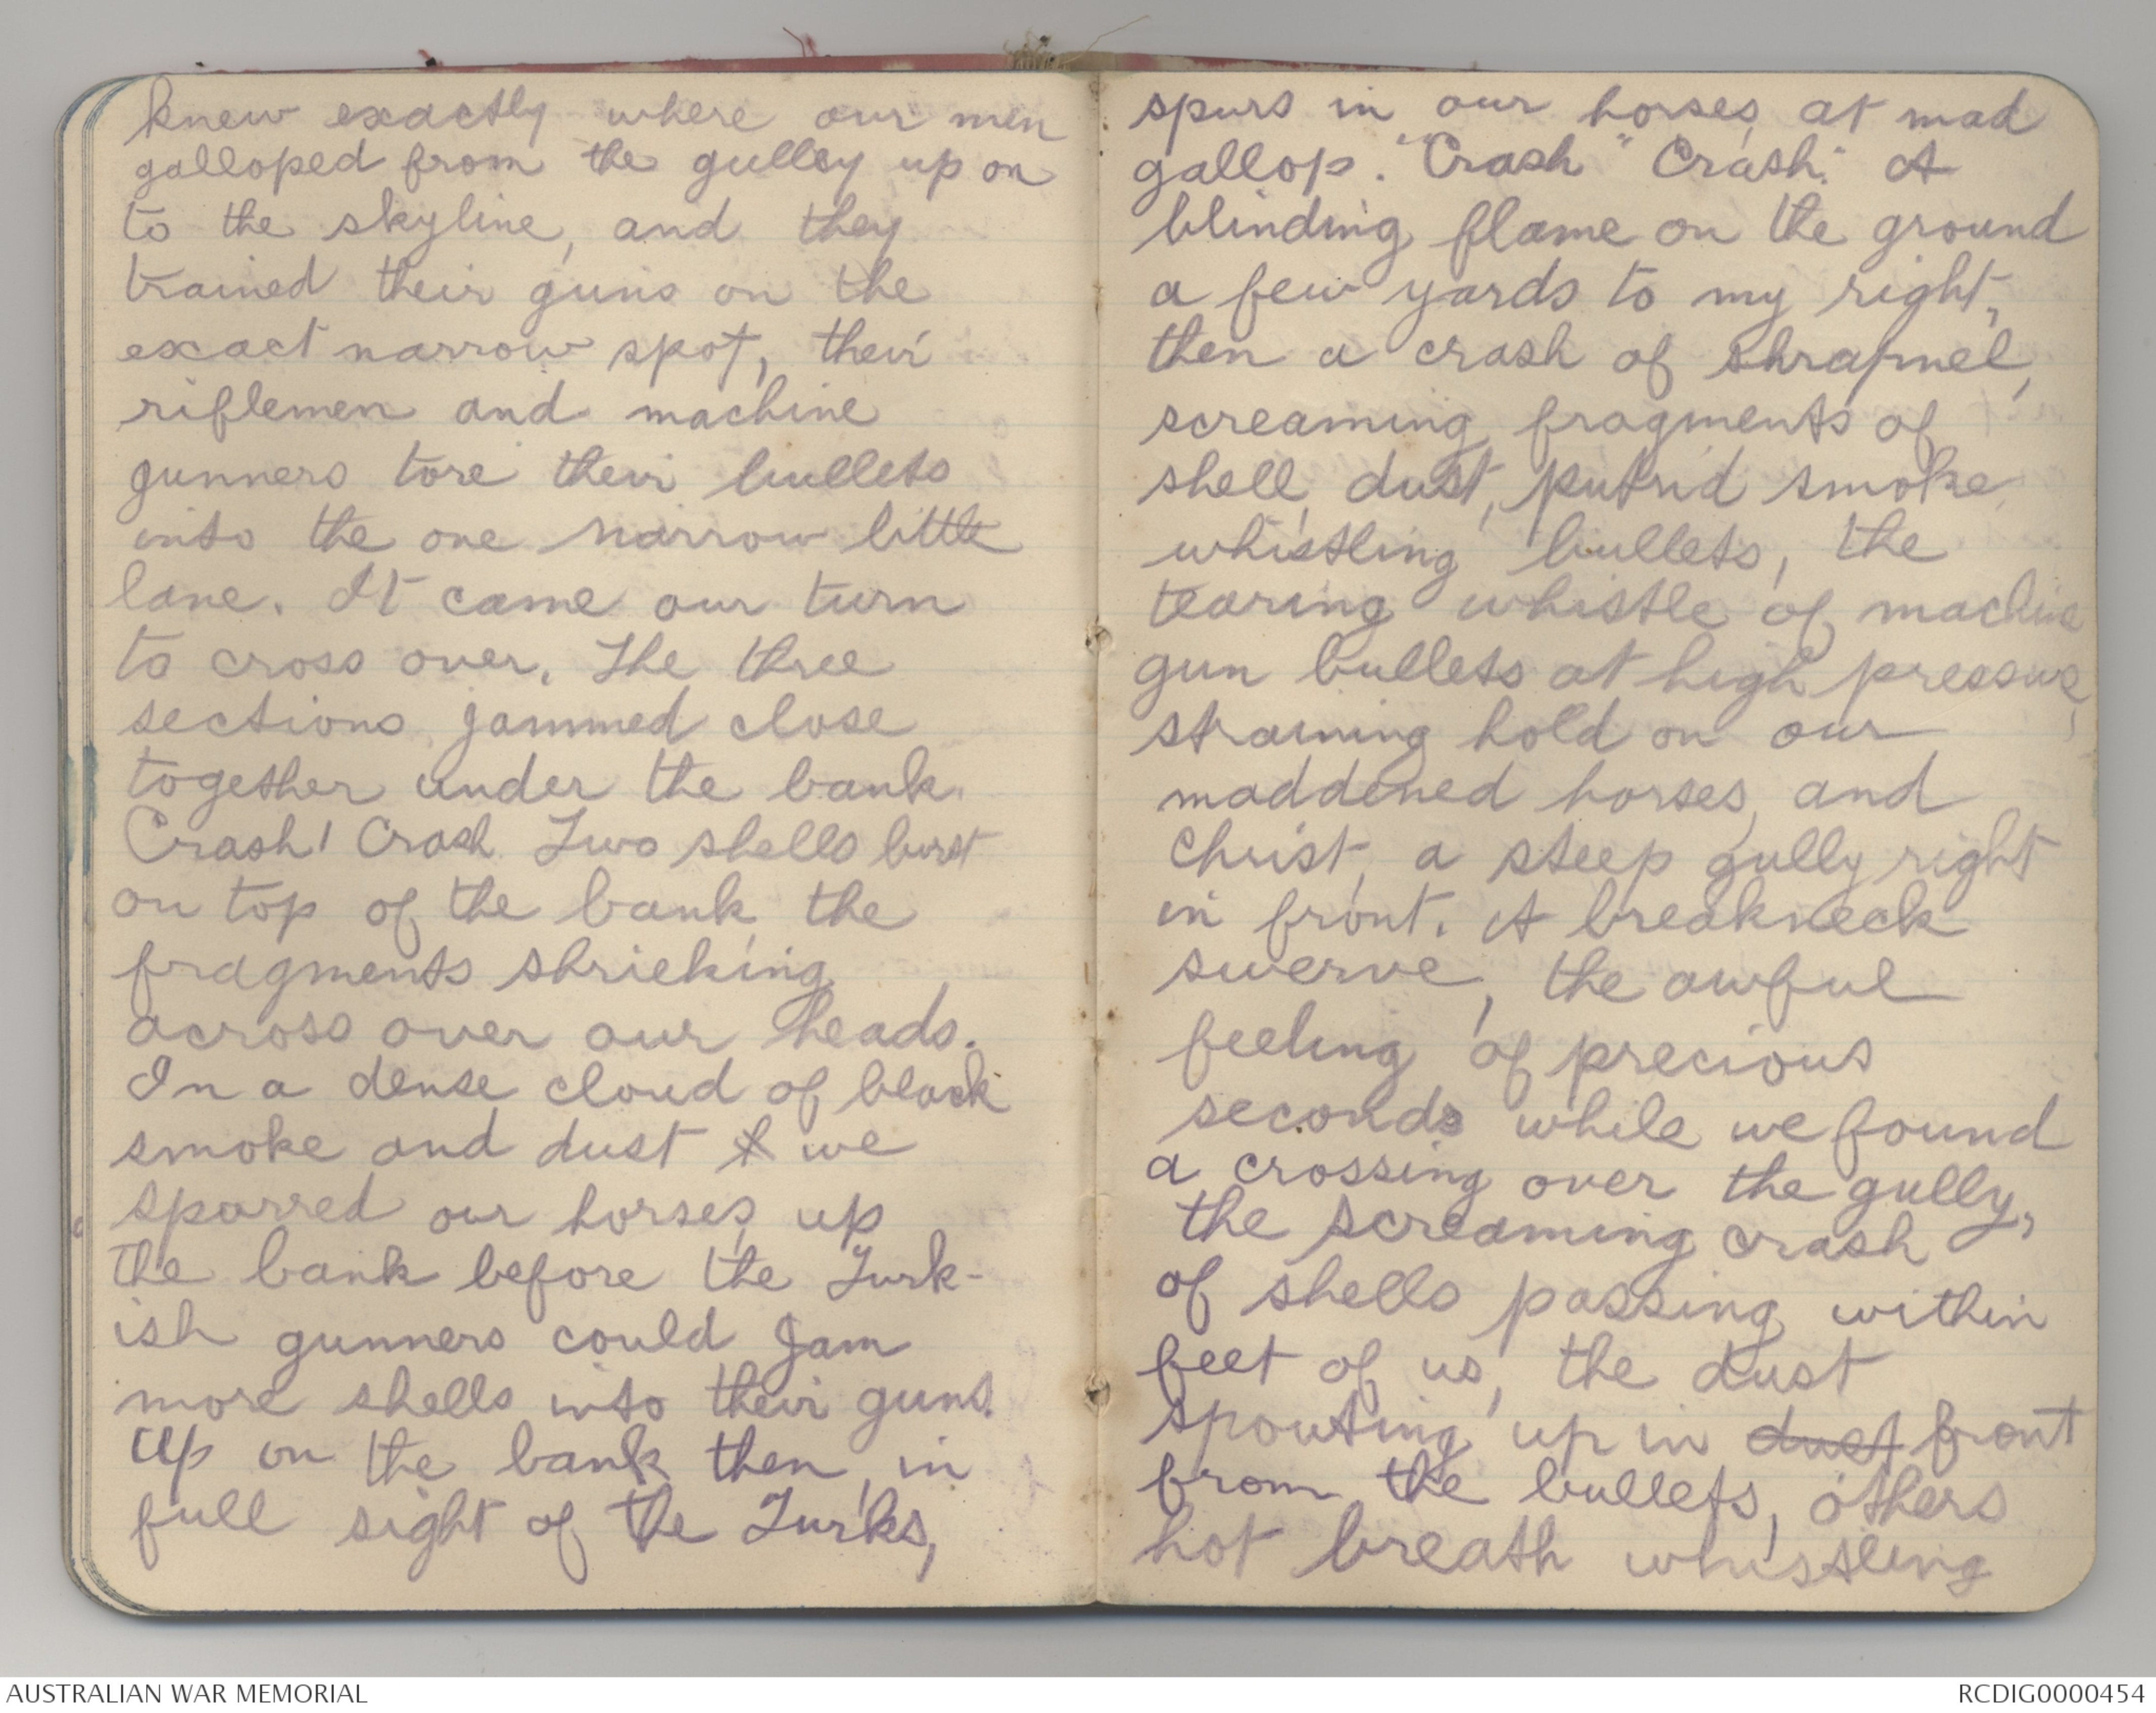 knew exactly where our men
galloped from the gulley up on
to the skyline, and they
trained their guns on the
exact narrow spot, their
riflemen and machine
gunners tore their bullets
into the one narrow little
lane. It came our turn
to cross over. The three
sections jammed close
together under the bank.
Crash! Crash. Two shells burst
on top of the bank, the
fragments shrieking
across over our heads.
In a dense cloud of black
smoke and dust we
sparred our horses, up
the bank before the Turk-
ish gunners could jam
more shells into their guns.
Up on the bank then, in
full sight of the Turks,
spurs in our horses, at mad
gallop. "Crash" "Crash." A
blinding flame on the ground
a few yards to my right,
then a crash of shrapnel,
screaming fragments of
shell, dust, putrid smoke,
whistling bullets, the
tearing whistle of machine
gun bullets at high pressure,
straining hold on our
maddened horses, and
Christ, a steep gully right
in front. A breakneck
swerve, the awful
feeling of precious
seconds while we found
a crossing over the gully,
the screaming crash
of shells passing within
feet of us, the dust
spouting up in dust front
from the bullets, others
hot breath whistling
AUSTRALIAN WAR MEMORIAL
RCDIG0000454